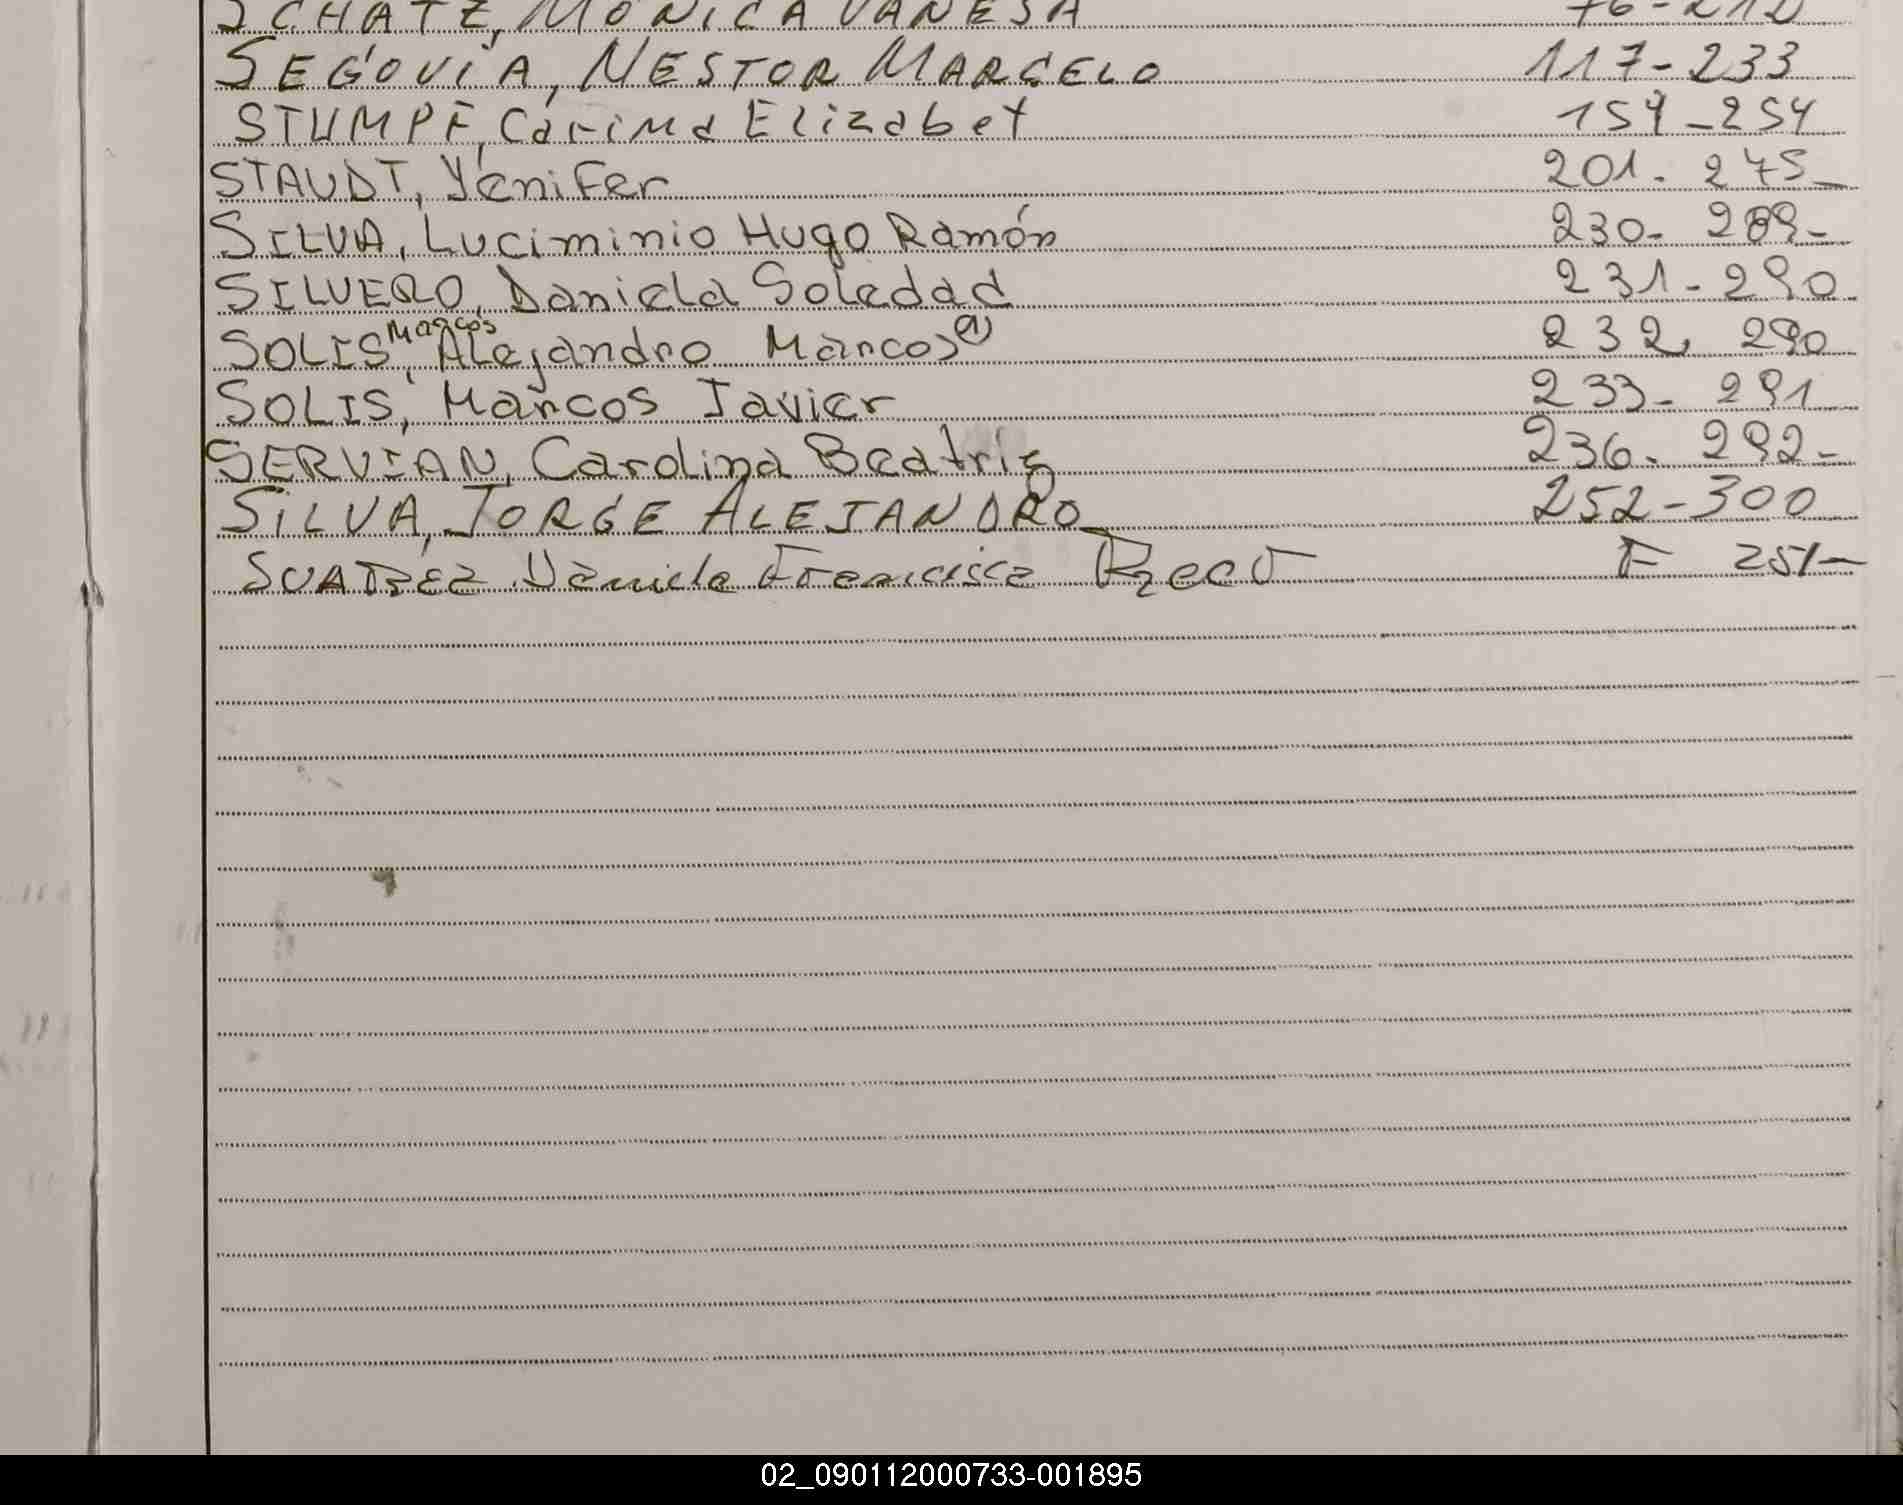 SCHATZ, MÓNICA VANESA 76-212
SEGOVIA, NESTOR MARCELO 117-233
STUMPF, Carina Elizabet 154-254
STAUDT, Yénifer 201- 275-
SILVA, Luciminio Hugo Ramón 230- 289-
SILVERO, Daniela Soledad 231-290
SOLIS, Marcos Alejandro Marcos (a) 232, 290
SOLIS, Marcos Javier 233- 291
SERVIAN, Carolina Beatriz 236- 292-
SILVA, JORGE ALEJANDRO 252-300
SUAREZ Daniela Francisca Reco F 251-
02_090112000733-001895